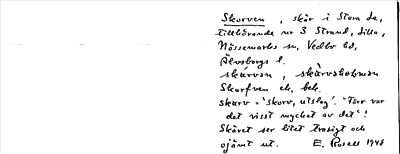 Skorven, skär i Stora Le,
tillhörande nr 3 Strand, Lilla,
Nössemarks sn, Vedbo hd,
Älvsborgs l.
skárvan, skärvshotman
Skorfven ek. bek.
skarv = 'skorv, utslag'. "Törr var
det visst mycket av det"!
Skäret ser litet trasigt och
ojämt ut. E. Rosell 1948